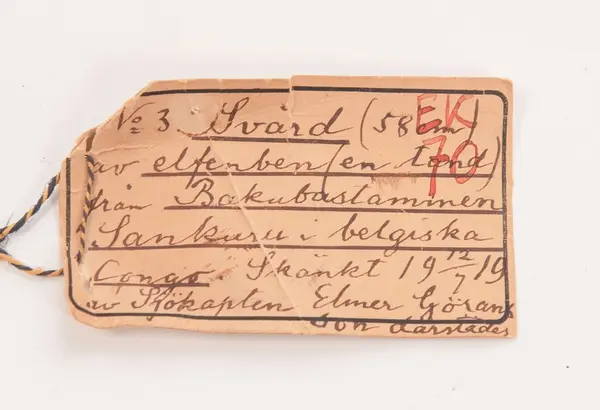 № 3 Svärd (58 cm)
EK
70
av elfenben (en tand)
från Bakubastammen
Sankuru i belgiska
Congo. Skänkt 19 12/7 19
av Sjökapten Elmer Görans
son därstädes